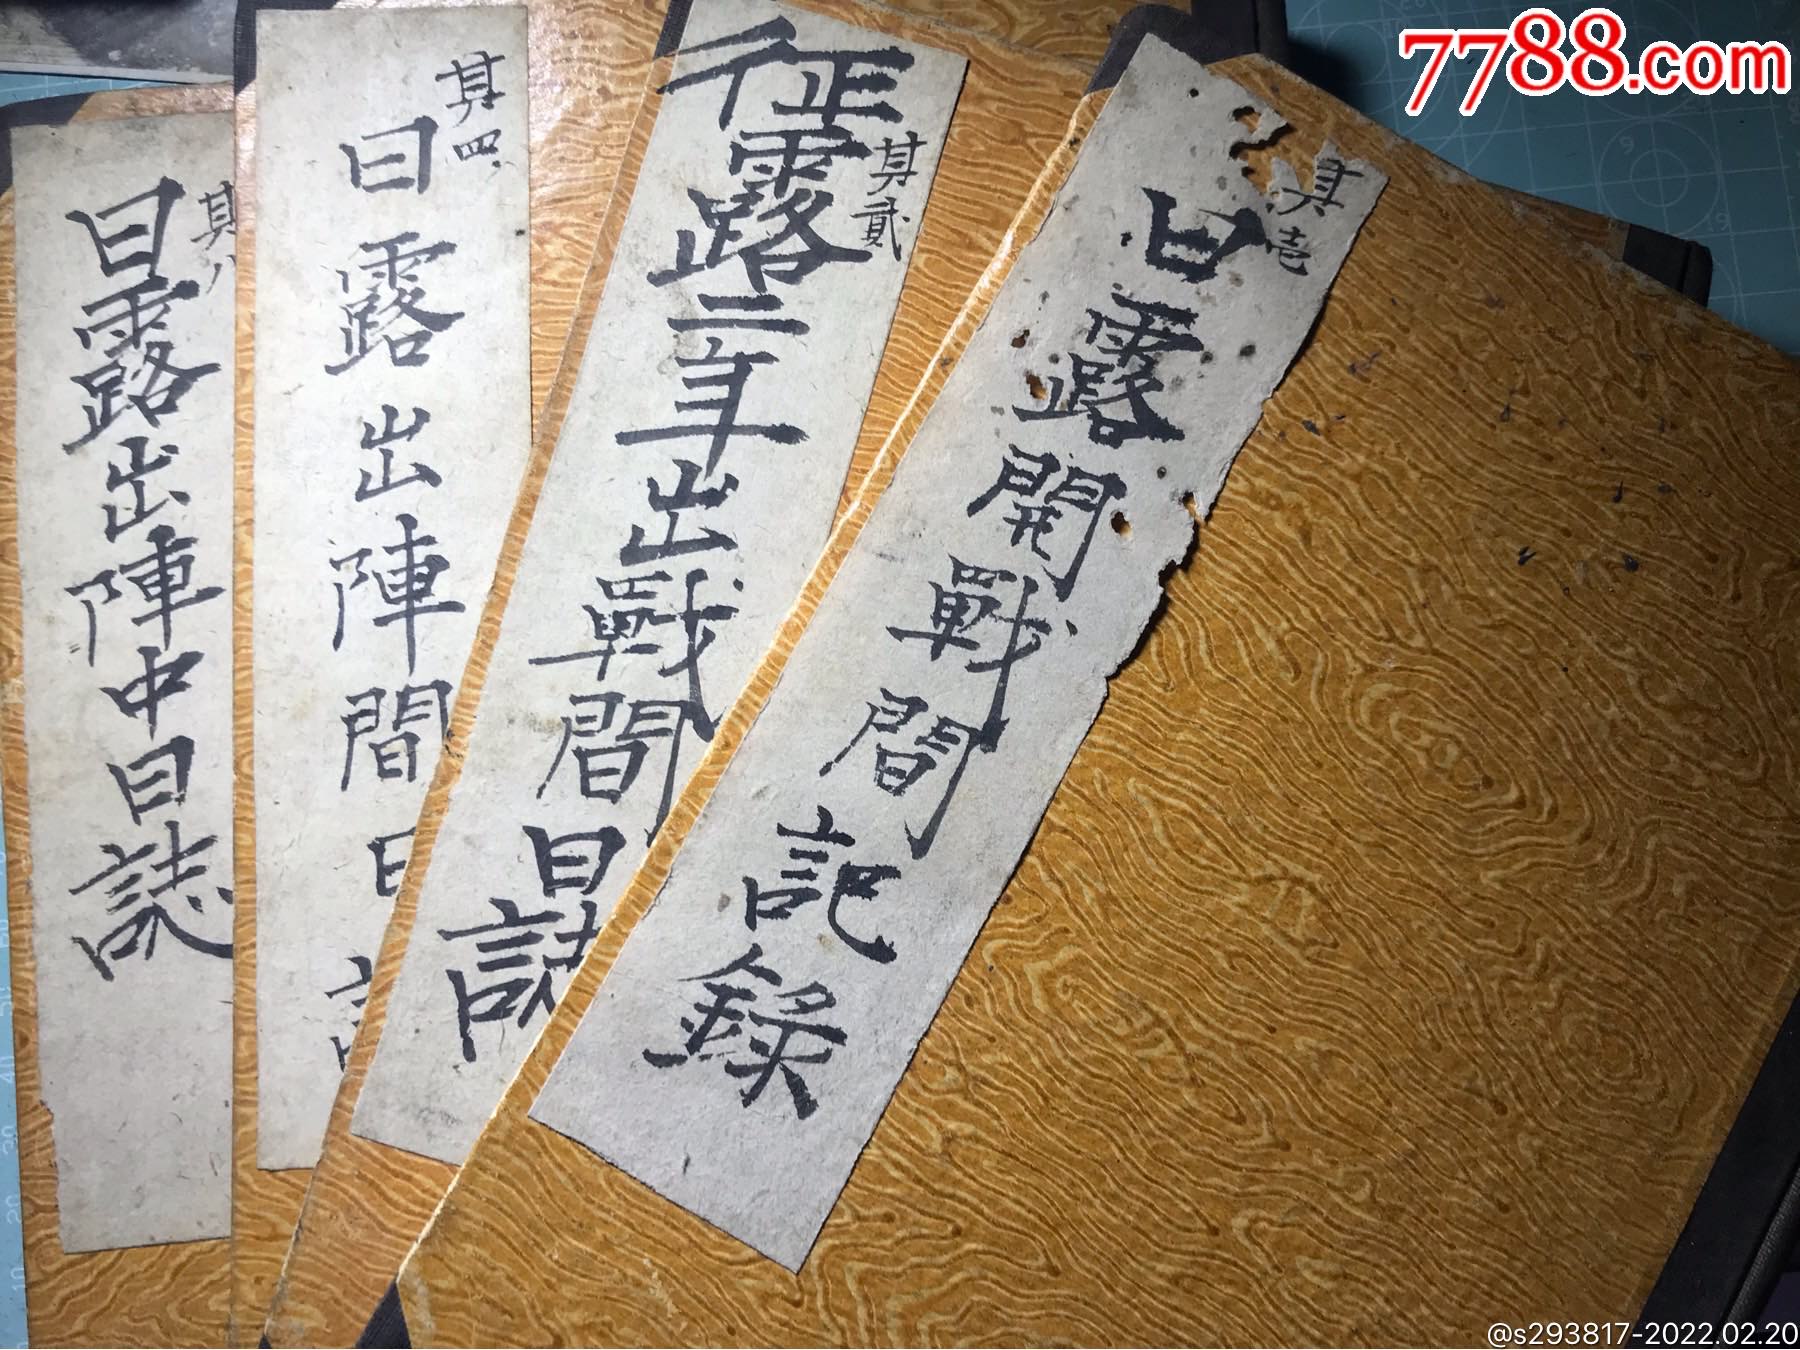 7788.com
其壱
日露開戰間記錄
其貳
征露二年出戰間日誌
其四、
日露出陣間日
其八
日露出陣中日誌
@s293817-2022.02.20